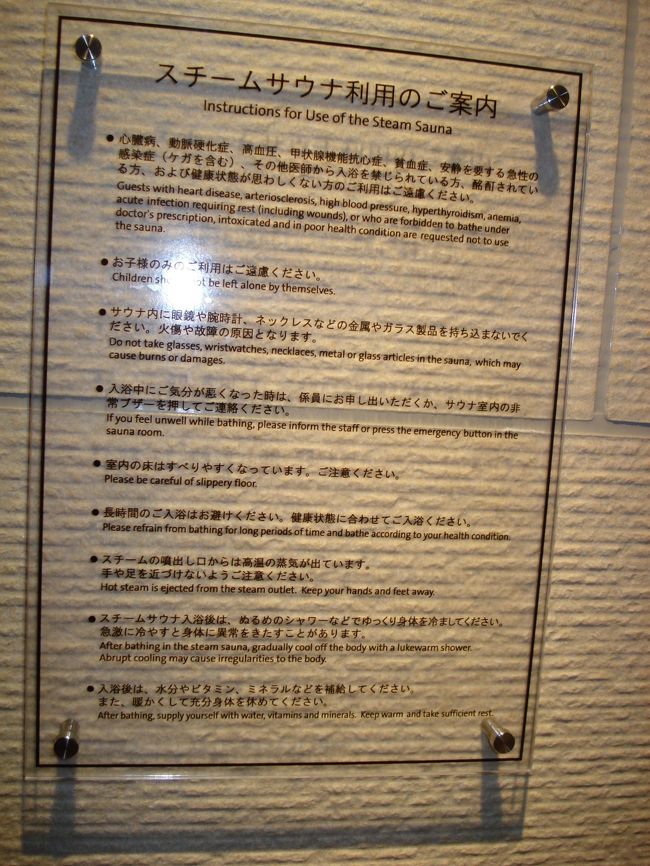 スチームサウナ利用のご案内
Instructions for Use of the Steam Sauna
● 心臓病、動脈硬化症、高血圧、甲状腺機能抗心症、貧血症、安静を要する急性の
感染症（ケガを含む）、その他医師から入浴を禁じられている方、酩酊されてい
る方、および健康状態が思わしくない方のご利用はご遠慮ください。
Guests with heart disease, arteriosclerosis, high blood pressure, hyperthyroidism, anemia,
acute infection requiring rest (including wounds), or who are forbidden to bathe under
doctor's prescription, intoxicated and in poor health condition are requested not to use
the sauna.
● お子様のみのご利用はご遠慮ください。
Children be left alone by themselves.
● サウナ内に眼鏡や腕時計、ネックレスなどの金属やガラス製品を持ち込まないでく
ださい。火傷や故障の原因となります。
Do not take glasses, wristwatches, necklaces, metal or glass articles in the sauna, which may
cause burns or damages.
● 入浴中にご気分が悪くなった時は、係員にお申し出いただくか、サウナ室内の非
常ブザーを押してご連絡ください。
If you feel unwell while bathing, please inform the staff or press the emergency button in the
sauna room.
● 室内の床はすべりやすくなっています。ご注意ください。
Please be careful of slippery floor.
● 長時間のご入浴はお避けください。健康状態に合わせてご入浴ください。
Please refrain from bathing for long periods of time and bathe according to your health condition.
● スチームの噴出し口からは高温の蒸気が出ています。
手や足を近づけないようご注意ください。
Hot steam is ejected from the steam outlet. Keep your hands and feet away.
● スチームサウナ入浴後は、ぬるめのシャワーなどでゆっくり身体を冷ましてください。
急激に冷やすと身体に異常をきたすことがあります。
After bathing in the steam sauna, gradually cool off the body with a lukewarm shower.
Abrupt cooling may cause irregularities to the body.
● 入浴後は、水分やビタミン、ミネラルなどを補給してください。
また、暖かくして充分身体を休めてください。
After bathing, supply yourself with water, vitamins and minerals. Keep warm and take sufficient rest.